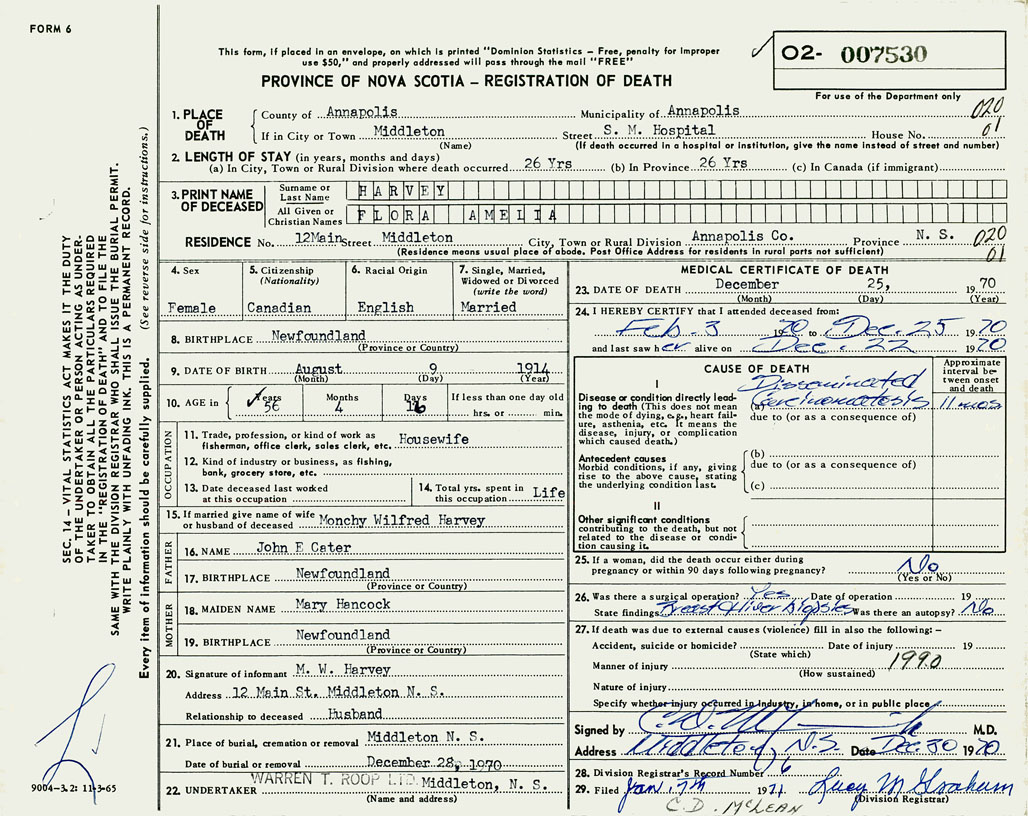 FORM 6
This form, if placed in an envelope, on which is printed "Dominion Statistics – Free, penalty for improper
use $50," and properly addressed will pass through the mail "FREE"
PROVINCE OF NOVA SCOTIA – REGISTRATION OF DEATH
02- 007530
For use of the Department only
SEC. 14 – VITAL STATISTICS ACT MAKES IT THE DUTY
OF THE UNDERTAKER OR PERSON ACTING AS UNDER-
TAKER TO OBTAIN ALL THE PARTICULARS REQUIRED
IN THE "REGISTRATION OF DEATH" AND TO FILE THE
SAME WITH THE DIVISION REGISTRAR WHO SHALL ISSUE THE BURIAL PERMIT.
WRITE PLAINLY WITH UNFADING INK. THIS IS A PERMANENT RECORD.
Every item of information should be carefully supplied. (See reverse side for instructions.)
1. PLACE OF DEATH
County of Annapolis Municipality of Annapolis 020
If in City or Town Middleton Street S. M. Hospital House No. 01
(Name) (If death occurred in a hospital or institution, give the name instead of street and number)
2. LENGTH OF STAY (in years, months and days)
(a) In City, Town or Rural Division where death occurred 26 Yrs (b) In Province 26 Yrs (c) In Canada (if immigrant)
3. PRINT NAME OF DECEASED
Surname or Last Name HARVEY
All Given or Christian Names FLORA AMELIA
RESIDENCE No. 12Main Street Middleton City, Town or Rural Division Annapolis Co. Province N. S. 020
(Residence means usual place of abode. Post Office Address for residents in rural parts not sufficient) 01
4. Sex 5. Citizenship (Nationality) 6. Racial Origin 7. Single, Married, Widowed or Divorced (write the word)
Female Canadian English Married
8. BIRTHPLACE Newfoundland
(Province or Country)
9. DATE OF BIRTH August 9 1914
(Month) (Day) (Year)
10. AGE in Years Months Days If less than one day old
56 4 16 hrs. or min.
OCCUPATION
11. Trade, profession, or kind of work as fisherman, office clerk, sales clerk, etc. Housewife
12. Kind of industry or business, as fishing, bank, grocery store, etc.
13. Date deceased last worked at this occupation 14. Total yrs. spent in this occupation Life
15. If married give name of wife or husband of deceased Monchy Wilfred Harvey
FATHER
16. NAME John E Cater
17. BIRTHPLACE Newfoundland
(Province or Country)
MOTHER
18. MAIDEN NAME Mary Hancock
19. BIRTHPLACE Newfoundland
(Province or Country)
20. Signature of informant M. W. Harvey
Address 12 Main St. Middleton N. S.
Relationship to deceased Husband
21. Place of burial, cremation or removal Middleton N. S.
Date of burial or removal December 28, 1970
22. UNDERTAKER WARREN T. ROOP LTD. Middleton, N. S.
(Name and address)
9004–3.2: 11-3-65
MEDICAL CERTIFICATE OF DEATH
23. DATE OF DEATH December 25, 1970
(Month) (Day) (Year)
24. I HEREBY CERTIFY that I attended deceased from:
Feb. 3 1970 to Dec. 25 1970
and last saw her alive on Dec. 22 1970
CAUSE OF DEATH
Approximate interval between onset and death
I
Disease or condition directly leading to death (This does not mean the mode of dying, e.g., heart failure, asthenia, etc. It means the disease, injury, or complication which caused death.)
(a) Disseminated Carcinomatosis 11 mos
due to (or as a consequence of)
Antecedent causes
Morbid conditions, if any, giving rise to the above cause, stating the underlying condition last.
(b)
due to (or as a consequence of)
(c)
II
Other significant conditions
contributing to the death, but not related to the disease or condition causing it.
25. If a woman, did the death occur either during pregnancy or within 90 days following pregnancy? No
(Yes or No)
26. Was there a surgical operation? Yes Date of operation 19
State findings Breast & liver biopsies Was there an autopsy? No
27. If death was due to external causes (violence) fill in also the following: –
Accident, suicide or homicide? Date of injury 19
(State which)
Manner of injury 1990
(How sustained)
Nature of injury
Specify whether injury occurred in industry, in home, or in public place
Signed by M.D.
Address Middleton, N.S. Date Dec 30 1970
28. Division Registrar's Record Number 6
29. Filed Jan. 7th 1971 Lucy M Graham
(Division Registrar)
C.D. McLEAN